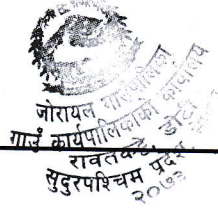 जोरायल गाउँपालिका
गाउँ कार्यपालिकाको कार्यालय
रावतकट्टे, डोटी
सुदुरपश्चिम प्रदेश
२०७३